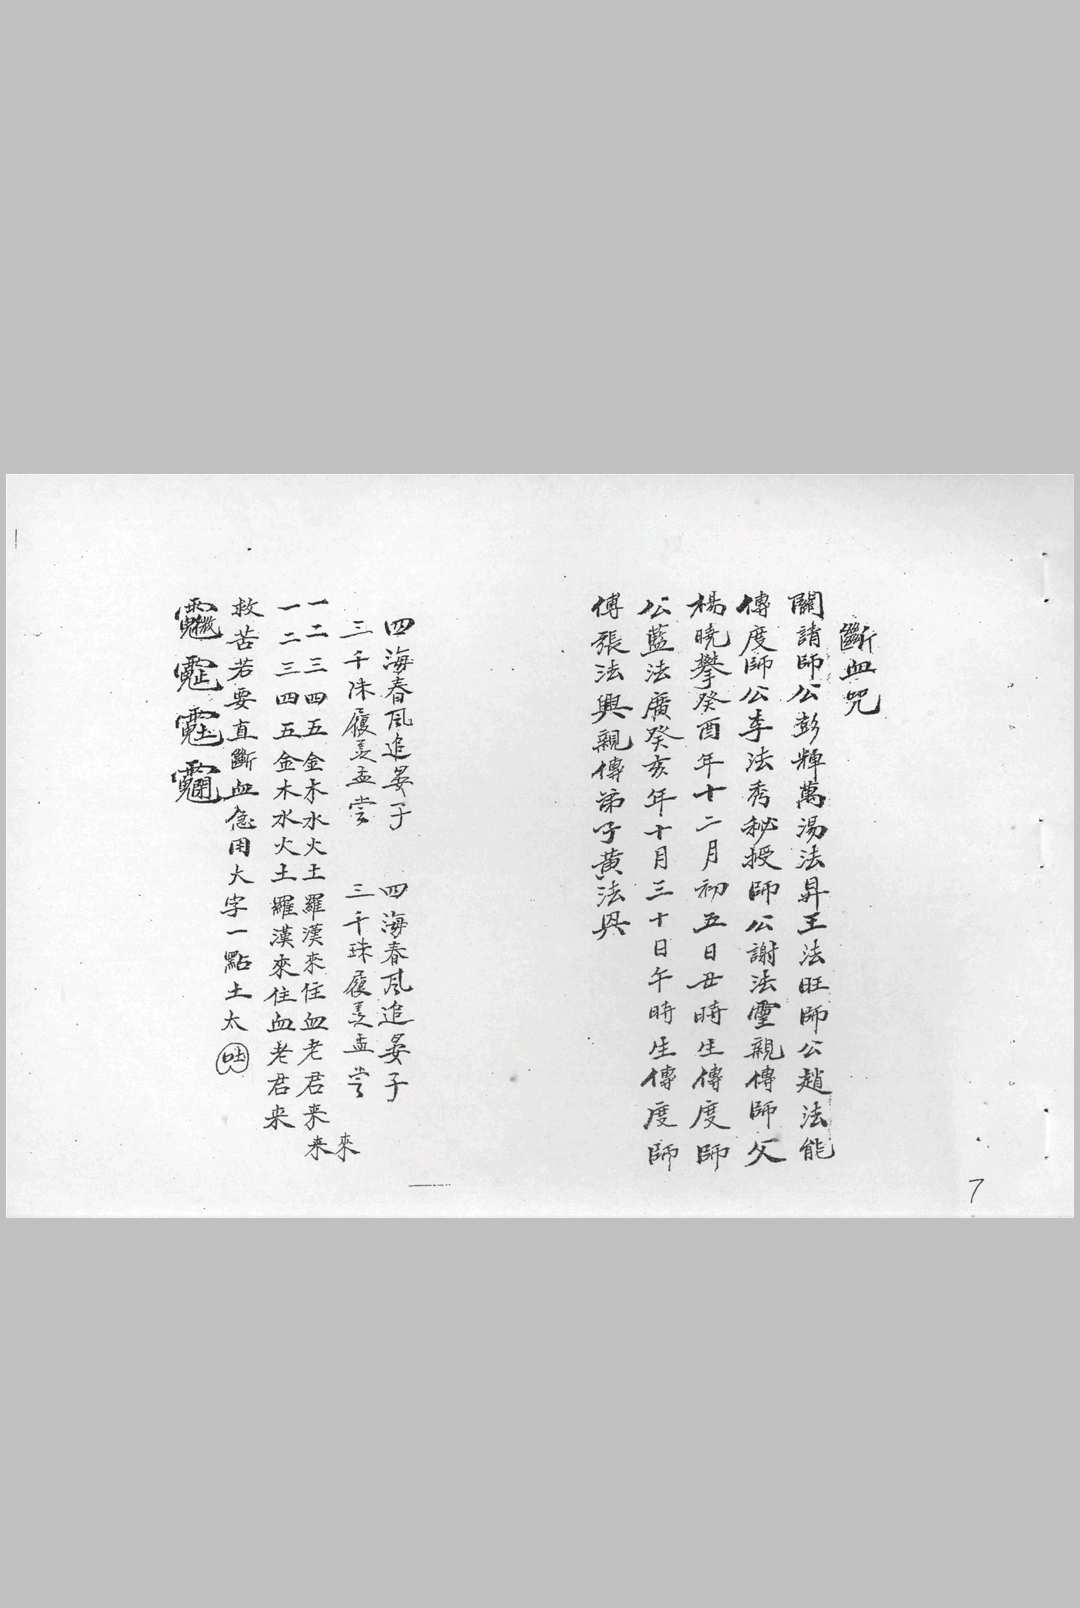 斷血咒
關請師公彭輝萬湯法昇王法旺師公趙法能
傳度師公李法秀秘授師公謝法靈親傳師父
楊曉攀癸酉年十二月初五日丑時生傳度師
公藍法廣癸亥年十月三十日午時生傳度師
傅張法興親傳弟子黃法興
四海春風追晏子 四海春風追晏子
三千珠履羨孟嘗 三千珠履羨孟嘗 來
一二三四五金木水火土羅漢來住血老君来来
一二三四五金木水火土羅漢來住血老君来
救苦若要直斷血急用大字一點土太吐
7